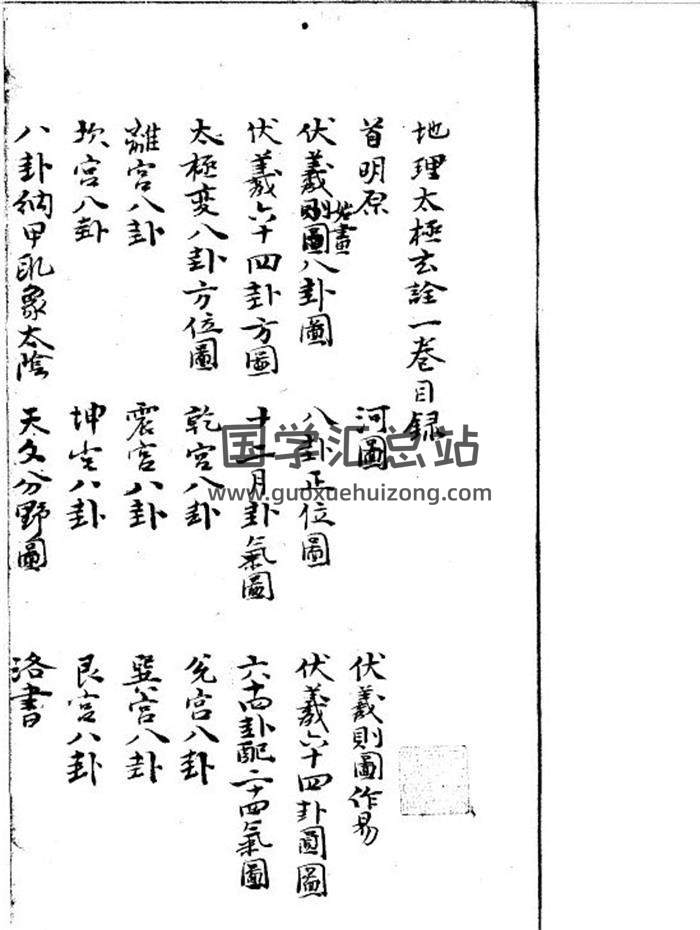 地理太極玄詮一巻目録
首明原 河圖 伏羲則圖作易
伏羲始畫八卦圖 八卦正位圖 伏羲六十四卦圓圖
伏羲六十四卦方圖 十二月卦氣圖 六十四卦配二十四氣圖
太極变八卦方位圖 乾宮八卦 兊宮八卦
離宮八卦 震宮八卦 巽宮八卦
坎宮八卦 坤宮八卦 艮宮八卦
八卦納甲 象太陰 天文分野圖 洛書
国学汇总站
www.guoxuehuizong.com